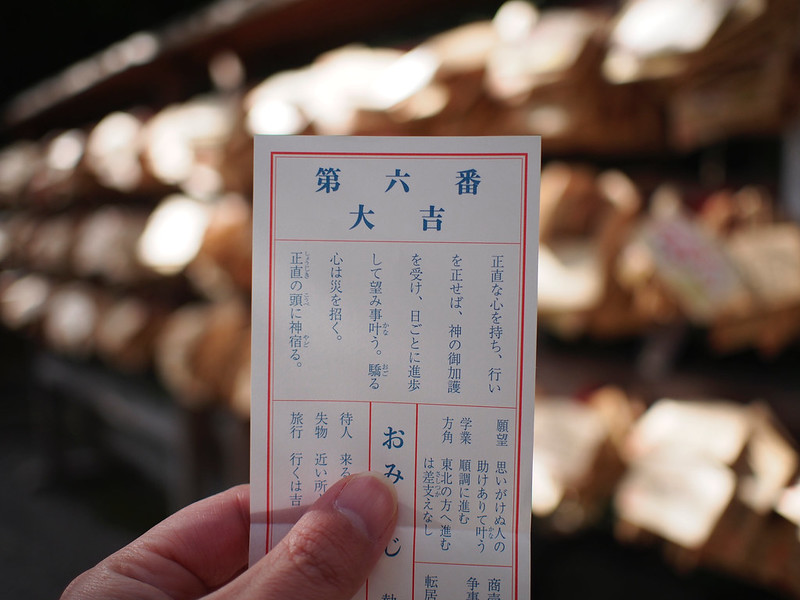 第六番
大吉
正直な心を持ち、行い
を正せば、神の御加護
を受け、日ごとに進歩
して望み事叶う。驕る
心は災を招く。
正直の頭に神宿る。
願望 思いがけぬ人の
助けありて叶う
学業 順調に進む
方角 東北の方へ進む
は差支えなし
おみ
じ
待人 来る
失物 近い所
旅行 行くは吉
争事
転居